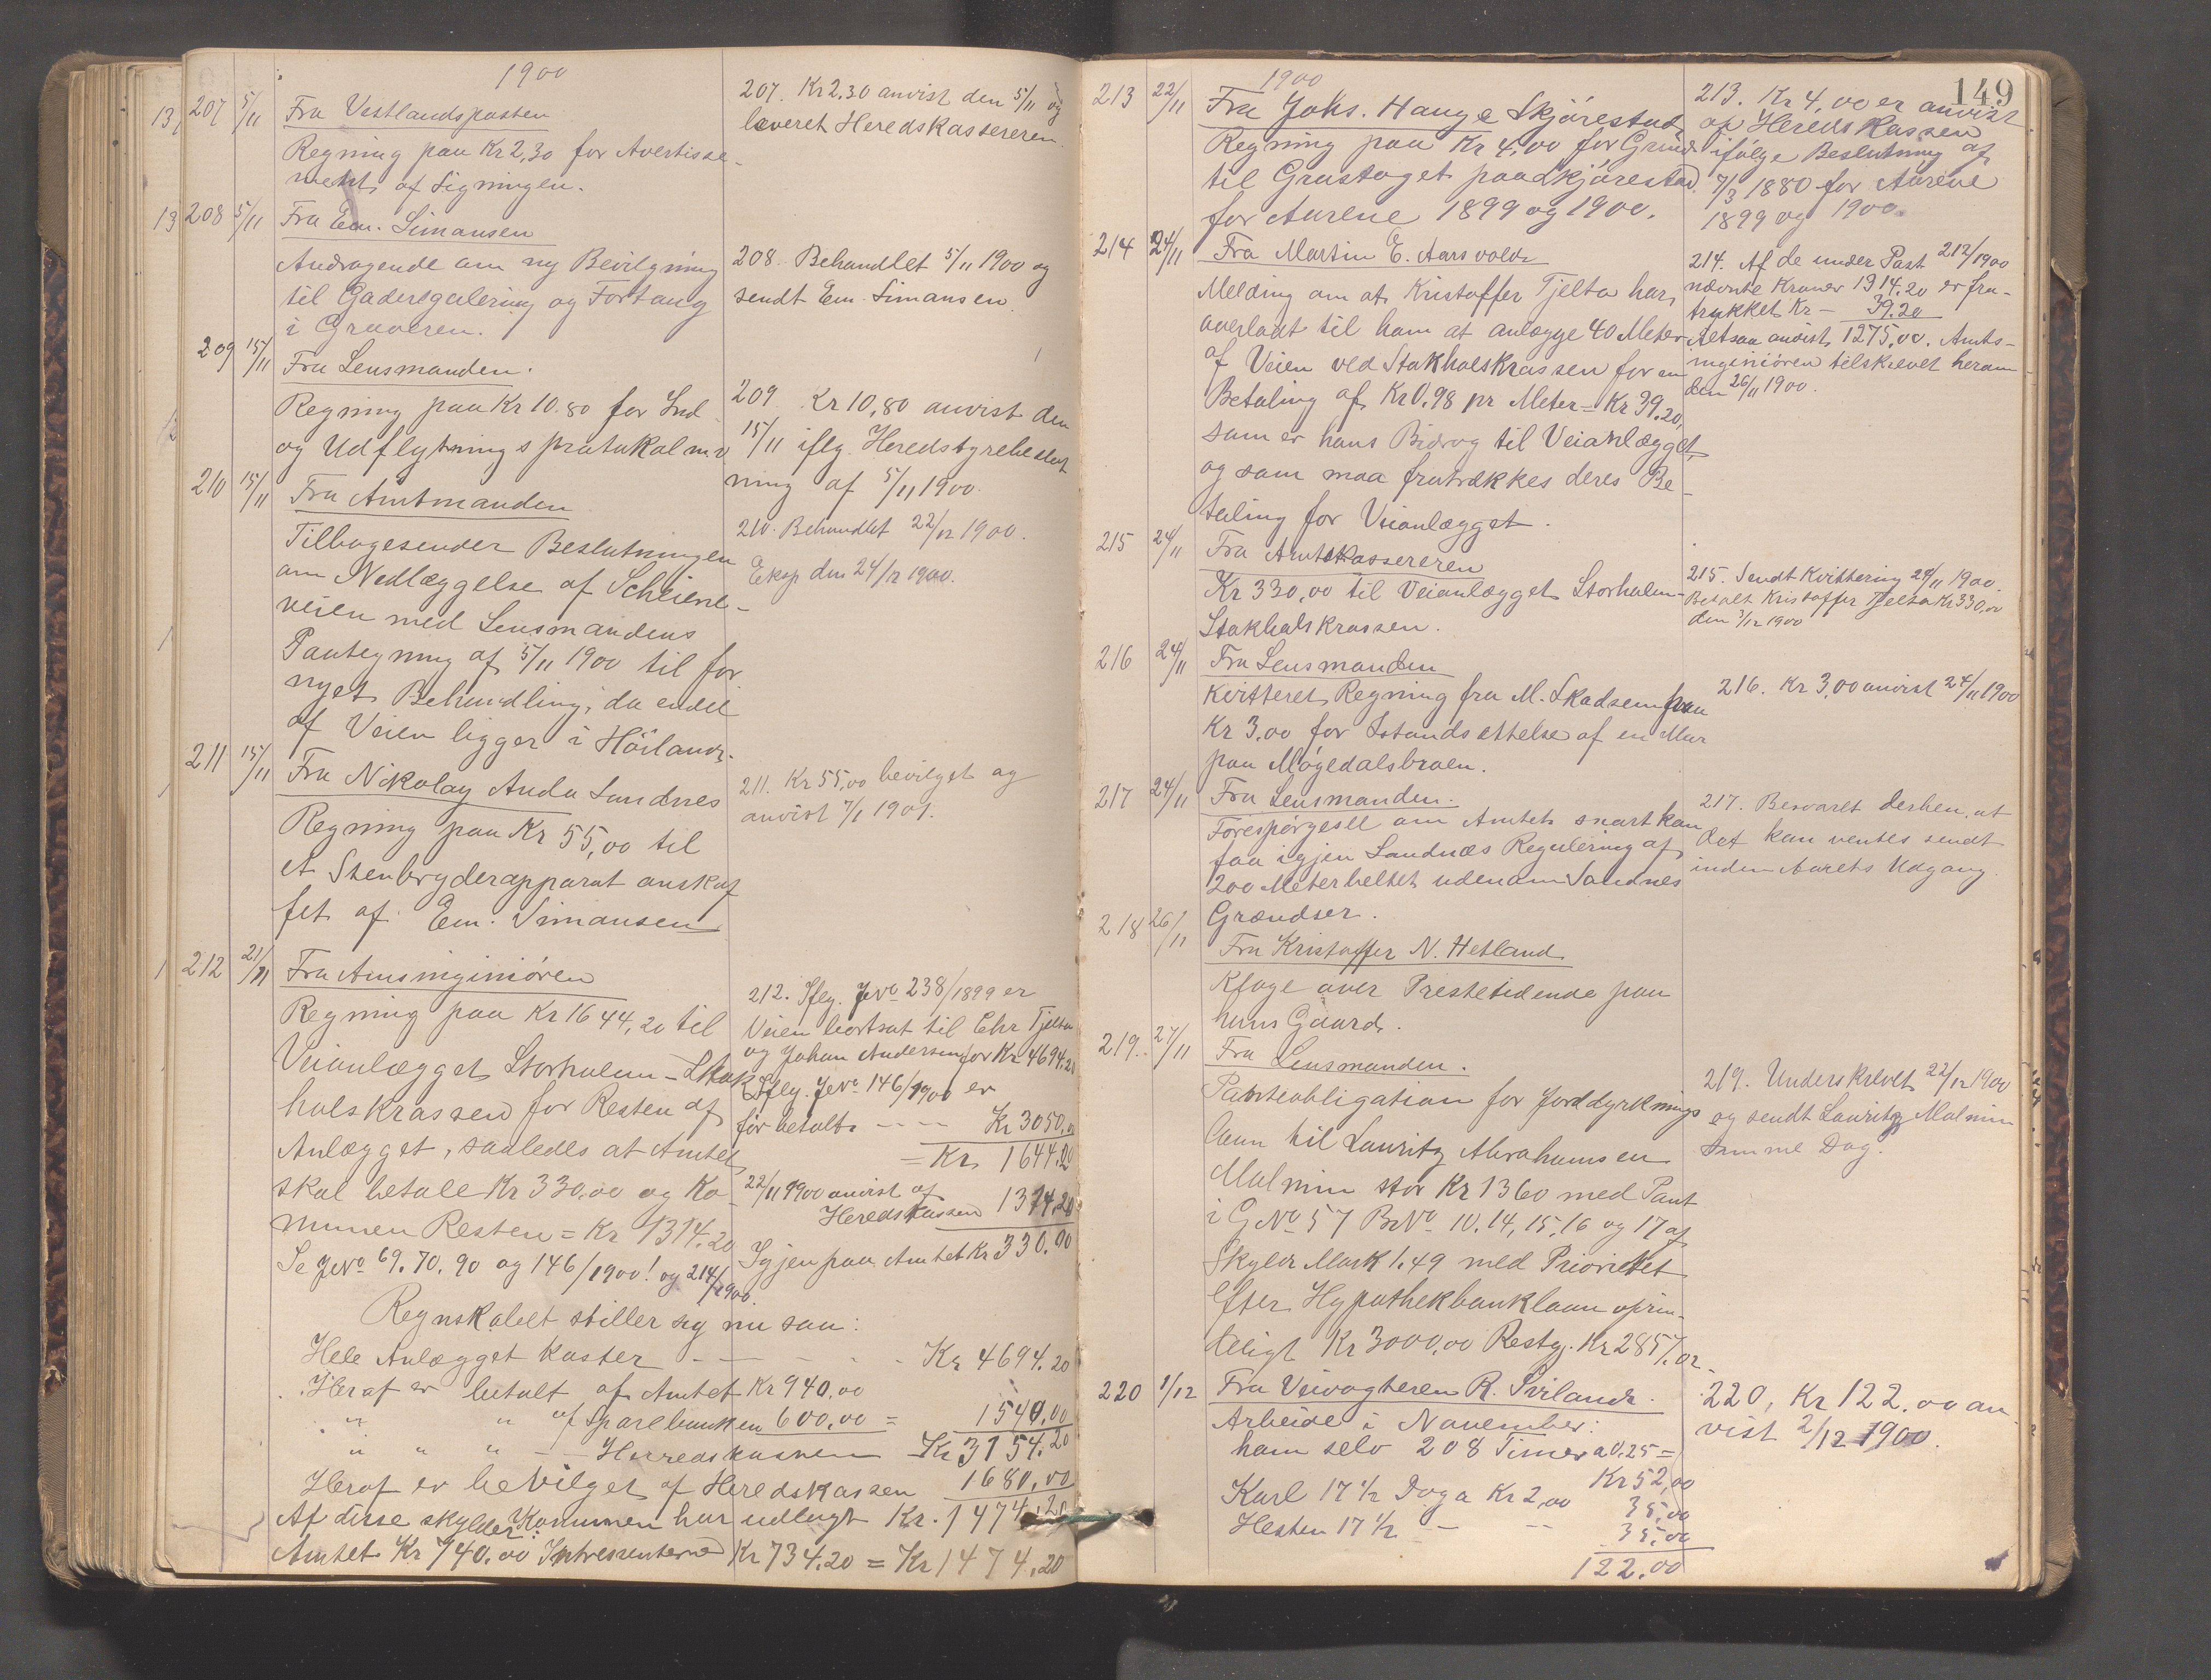 1900
13, 207 5/11 Fra Vestlandsposten
Regning paa Kr 2,30 for Avertisse-
ment af Ligningen.
207. Kr 2.30 anvist den 5/11 og
leveret Heredskassereren.
13 208 5/11 Fra Em. Simonsen
Andragende om ny Bevilgning
til Gaderegulering og Fortaug
i Graveren.
208. Behandlet 5/11 1900 og
sendt Em. Simonsen.
209 15/11 Fra Lensmanden.
Regning paa Kr 10.80 for Ind
og Udflytningsprotokol m.v
209 Kr 10,80 anvist den
15/11 iflg. Heredstyrebeslut
ning af 5/11 1900.
210 15/11 Fra Amtmanden
Tilbagesender Beslutningen
om Nedlæggelse af Scheiene-
veien med Lensmandens
Paategning af 5/11 1900 til for
nyet Behandling, da endel
af Veien ligger i Høiland.
210. Behandlet 22/12 1900.
Eksp den 24/12 1900.
211 15/11 Fra Nikolay Auda Sandnes
Regning paa Kr 55,00 til
et Stenbryderapparat anskaf
fet af Em. Simonsen
211. Kr 55,00 bevilget og
anvist 7/1 1901.
1 212 21/11 Fra Amsingeniøren
Regning paa Kr 1644,20 til
Veianlægget Storhulen-Stok
halskrossen for Resten af
Anlægget, saaledes at Amtet
skal betale Kr 330,00 og Ko-
munen Resten = Kr 1314.20
Se JNo 69. 70. 90 og 146/1900! og 214/1900.
212. Iflg. JNo 238/1899 er
Veien bortsat til Chr Tjelta
og Johan Andersen for Kr 4694.20
Iflg. JNo 146/1900 er
før betalt ---- Kr 3050,00
= Kr 1644.20
22/11 1900 anvist af
Heredskassen 1314.20
Igjen paa Amtet Kr 330.00
Regnskabet stiller sig nu saa:
Hele Anlægget koster - - - - Kr 4694.20
Heraf er betalt af Amtet Kr 940,00
" " af Sparebanken 600,00 = 1540,00
" " " - Herredskassen Kr 3154.20
Heraf er bevilget af Heredskassen 1680,00
Af disse skylder Komunen har udlagt Kr. 1474.20
Amtet Kr 740.00 Intressenterne Kr 734.20 = Kr 1474.20
149
1900
213 22/11 Fra Johs. Hauge Skjørestad
Regning paa Kr 4,00 for Grund
til Grustaget paa Skjørestad
for Aarene 1899 og 1900.
213. Kr 4,00 er anvist
af Heredskassen
ifølge Beslutning af
7/3 1880 for Aarene
1899 og 1900.
214 24/11 Fra Martin E. Aarsvold
Melding om at Kristoffer Tjelta har
overladt til ham at anlægge 40 Meter
af Veien ved Stokhalskrossen for en
Betaling af Kr 0,98 pr Meter = Kr 39.20,
som er hans Bidrag til Veianlægget,
og som maa fratrækkes deres Be-
taling for Veianlægget.
214. Af de under Post 212/1900
nævnte Kroner 1314.20 er fra-
trukket Kr - 39.20
Altsaa anvist 1275,00. Amts-
ingeniøren tilskrevet herom
den 26/11 1900.
215 24/11 Fra Amtskassereren
Kr 330,00 til Veianlægget Storhulen-
Stokhalskrossen.
215. Sendt Kvittering 24/11 1900.
Betalt Kristoffer Tjelta Kr 330,00
den 3/12 1900
216 24/11 Fra Lensmanden
Kvitteret Regning fra M. Skadsem paa
Kr 3,00 for Istandsættelse af en Mur
paa Møgedalsbroen.
216. Kr 3,00 anvist 24/11 1900
217 24/11 Fra Lensmanden.
Forespørgesel om Amtet snart kan
faa igjen Sandnæs Regulering af
200 Meterbeltet udenom Sandnes
Grændser.
217. Besvaret derhen, at
det kan ventes sendt
inden Aarets Udgang.
218 26/11 Fra Kristoffer N. Hetland
Klage over Prestetiende paa
hans Gaard.
219. 27/11 Fra Lensmanden.
Panteobligation for Jorddyrknings
laan til Lauritz Abrahamsen
Malmin stor Kr 1360 med Pant
i GNo 57 BrNo 10.14,15,16 og 17 af
Skyld Mark 1.49 med Prioritet
efter Hypothekbanklaan oprin-
deligt Kr 3000,00 Restg. Kr 2857.02
219. Underskrevet 22/12 1900
og sendt Lauritz Malmin
samme Dag.
220 1/12 Fra Veivogteren R. Sviland.
Arbeide i November:
ham selv 208 Timer a 0.25 =
Kr 52,00
Karl 17 1/2 Dag a Kr 2,00 35,00
Hesten 17 1/2 - - 35,00
122.00
220, Kr 122,00 an
vist 2/12 1900.